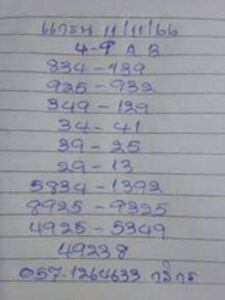 11/11/66
4-9 A B
834-139
925-932
349-129
34-41
39-25
29-13
5834-1392
8925-9325
4925-5349
49238
057-1264633 กสิกร